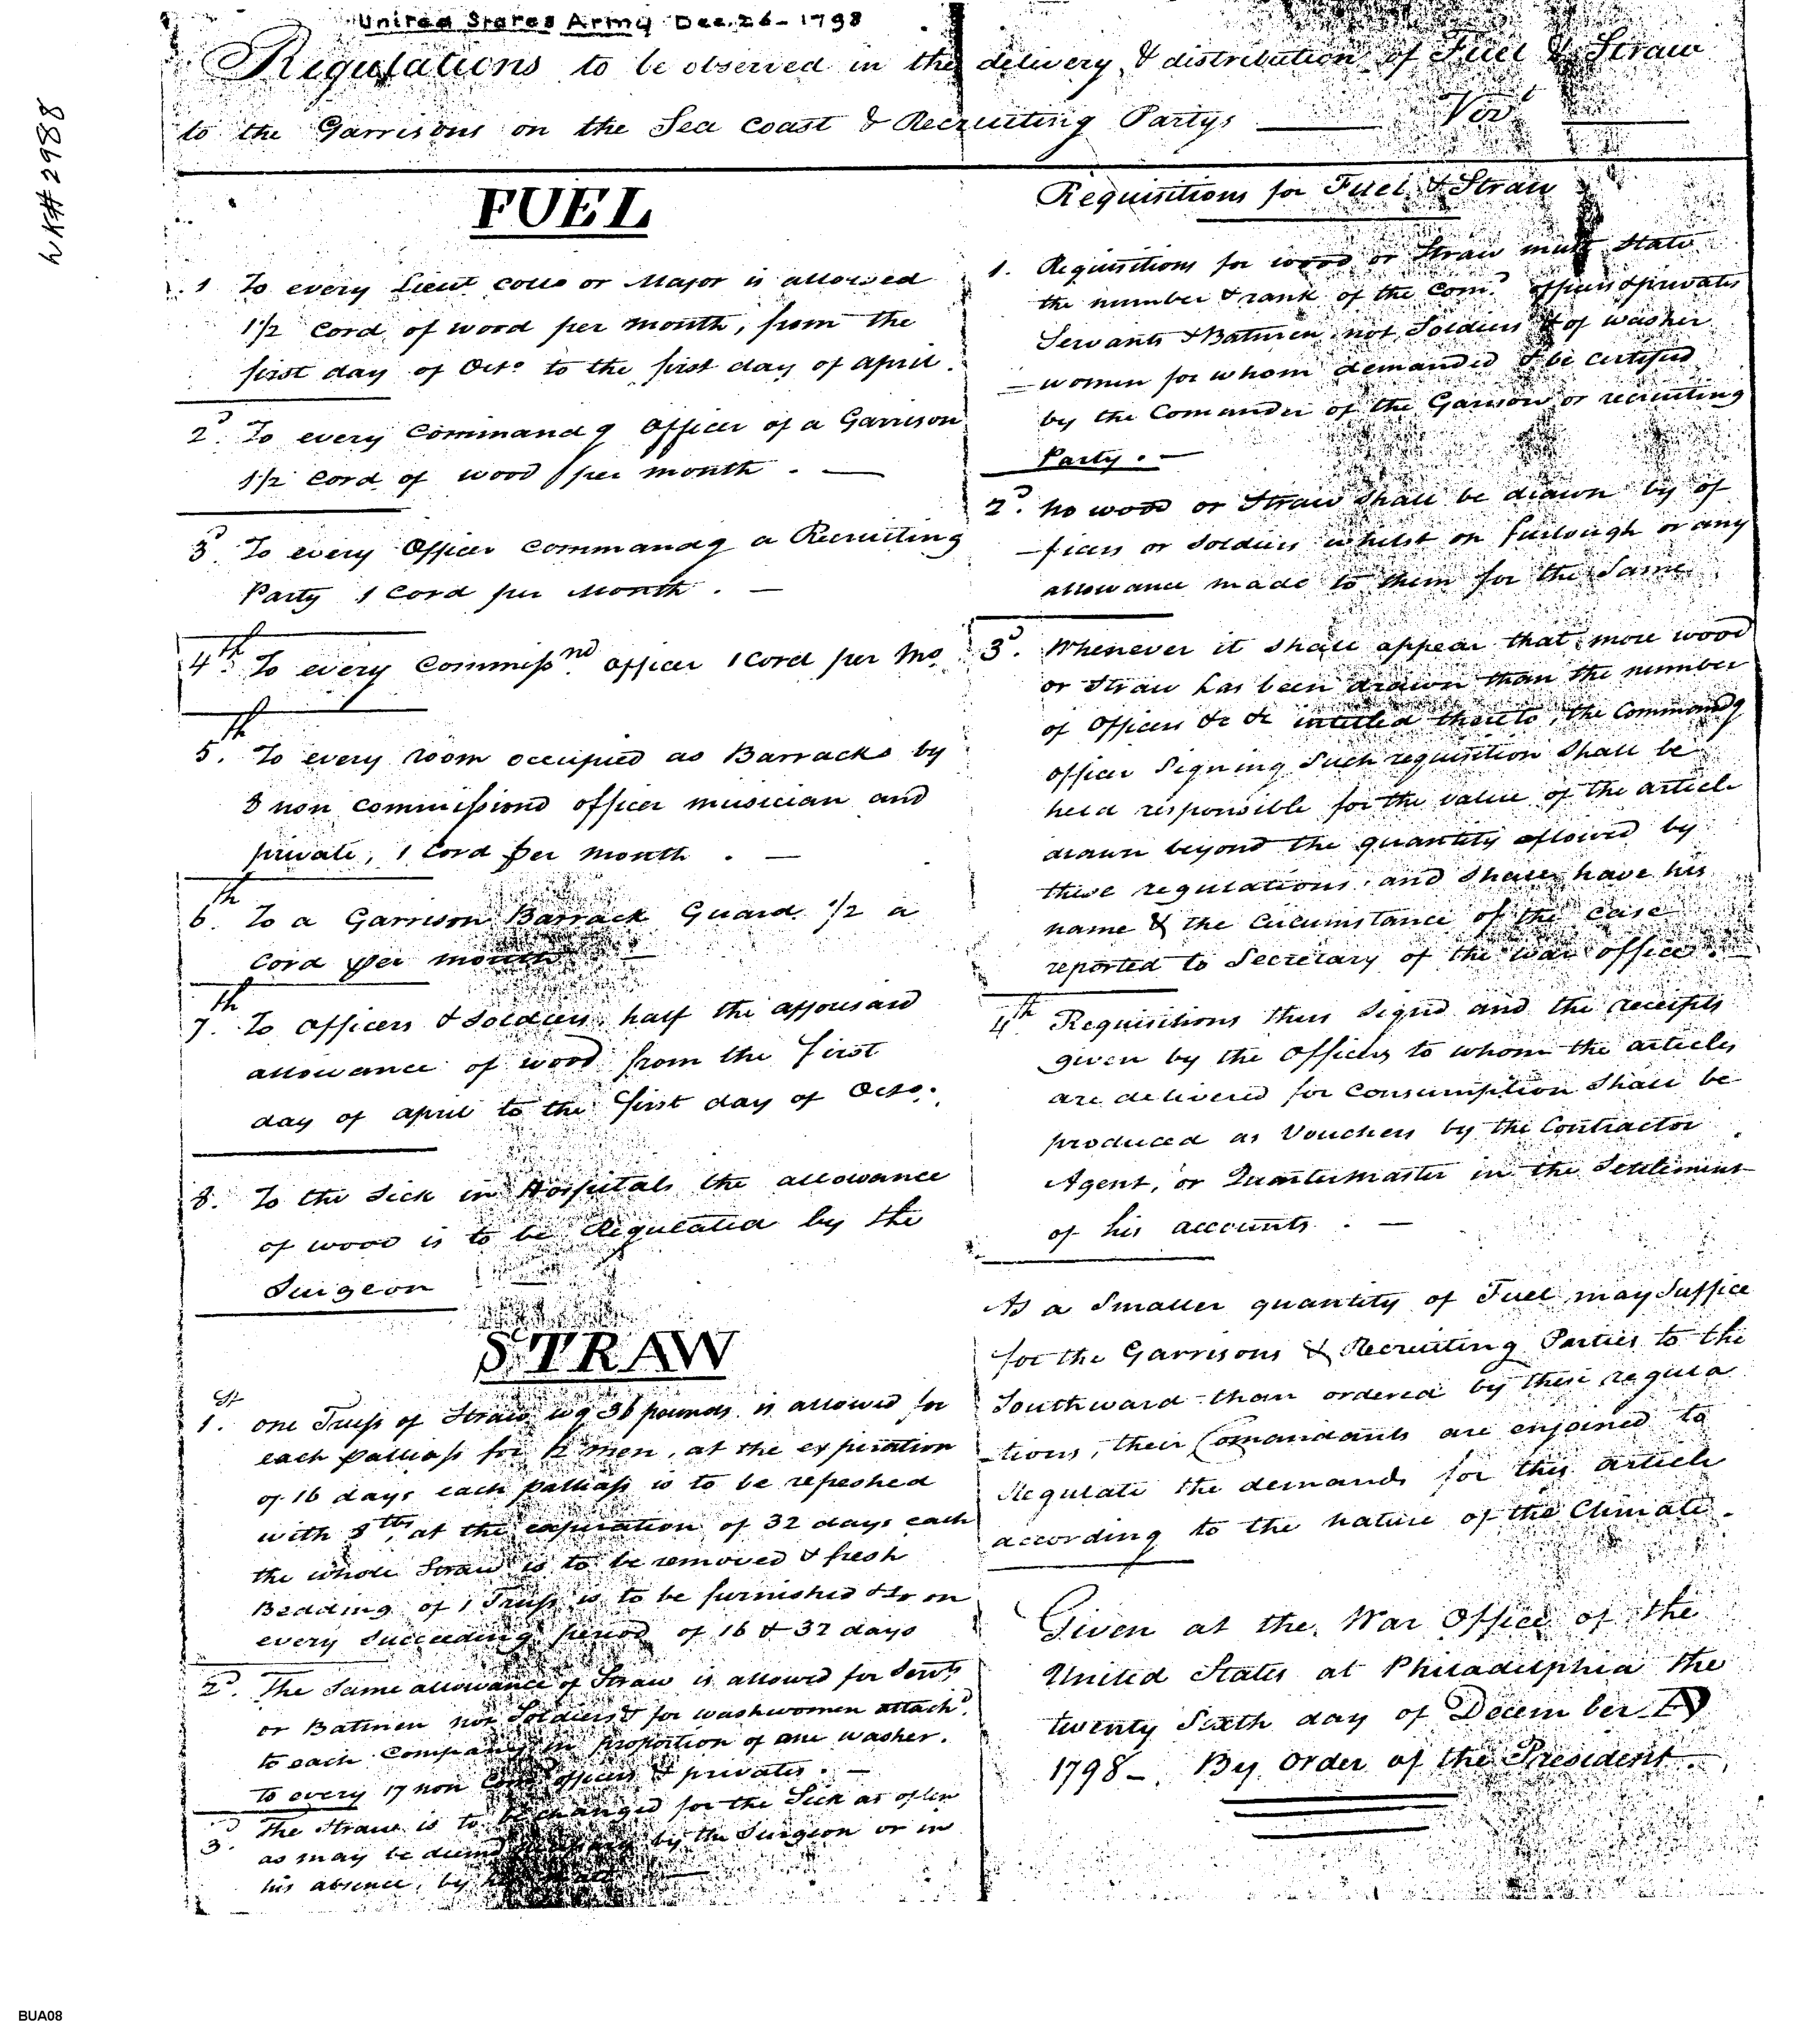 United States Army Dec. 26 - 1798
Regulations to be observed in the delivery & distribution of Fuel & Straw
to the Garrisons on the Sea Coast & Recruiting Partys
LK# 2988
FUEL
1 To every Lieut Collo or Major is allowed
1 1/2 Cord of wood per month, from the
first day of Octo to the first day of april.
2d. To every Command g Officer of a Garrison
1 1/2 Cord of wood per month . —
3d. To every Officer Commandg a Recruiting
Party 1 Cord per Month . —
4th. To every Commissnd officer 1 Cord per Mo
5th. To every room occupied as Barracks by
8 non commissiond officer musician and
private, 1 Cord per month . —
6th. To a Garrison Barrack Guard 1/2 a
Cord per month —
7th. To Officers & Soldiers, half the afforsaid
allowance of wood from the first
day of april to the first day of Octo.
8. To the Sick in Hospitals the allowance
of wood is to be Regulated by the
Surgeon
STRAW
1st. one Truss of Straw wg 36 pounds is allowed for
each palliass for 2 men, at the expiration
of 16 days each palliass is to be refeshed
with 8 lbs, at the expiration of 32 days each
the whole Straw is to be removed & fresh
Bedding of 1 Truss is to be furnished & so on
every succeeding period of 16 & 32 days
2d. The Same allowance of Straw is allowed for Servts
or Batmen not Soldiers & for washwomen attachd
to each Company in proportion of one washer.
to every 17 non Comd officers & privates. —
3d. The Straw is to be changed for the Sick as often
as may be deemd by the Surgeon or in
his absence, by
Requisitions for Fuel & Straw
1. Requisitions for wood or Straw must State
the number & rank of the Comd officers & privates
Servants & Batmen not Soldiers & of washer
— women for whom demanded & be certified
by the Comander of the Garison or recruiting
Party . —
2d. no wood or Straw shall be drawn by of
— ficers or Soldiers whilst on furlough or any
allowance made to them for the Same
3d. Whenever it shall appear that more wood
or Straw has been drawn than the number
of Officers &c &c intitled thereto, the Commandg
officer Signing Such requisition Shall be
held responsible for the value of the article
drawn beyond the quantity allowed by
these regulations, and shall have his
name & the Circumstance of the Case
reported to Secretary of the war office. —
4th Requisitions thus Signd and the receipts
given by the Officers to whom the articles
are delivered for Consumption Shall be
produced as Vouchers by the Contractor
Agent, or Quartermaster in the Settlement
of his accounts . —
As a Smaller quantity of Fuel may Suffice
for the Garrisons & Recruiting Parties to the
Southward than ordered by these regula
— tions, their Comandants are enjoined to
Regulate the demands for this article
according to the nature of the Climate.
Given at the War Office of the
United States at Philadelphia the
twenty Sixth day of December AD
1798 — By Order of the President.
BUA08